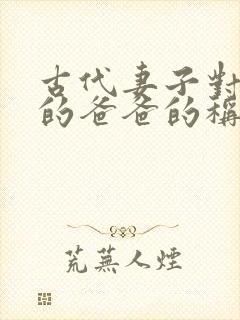 古代妻子對
的爸爸的稱
荒蕪人煙